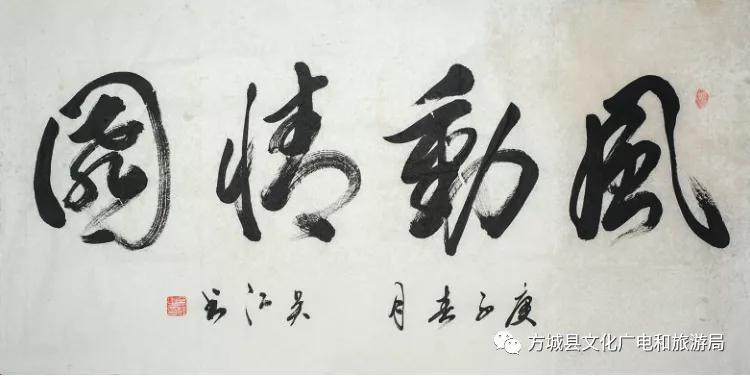 風動情園
庚子春月 吴 书
方城县文化广电和旅游局